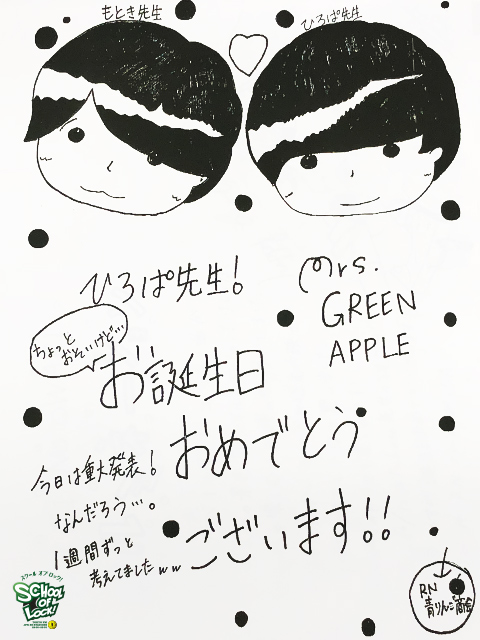 もとき先生
ひろぱ先生
ひろぱ先生!
Mrs.
GREEN
APPLE
ちょっと
おそいけど…
お誕生日
おめでとう
ございます!!
今日は重大発表!
なんだろう…。
1週間ずっと
考えてましたww
RN
青りんご商会
スクール オブ ロック!
SCHOOL
OF
LOCK!